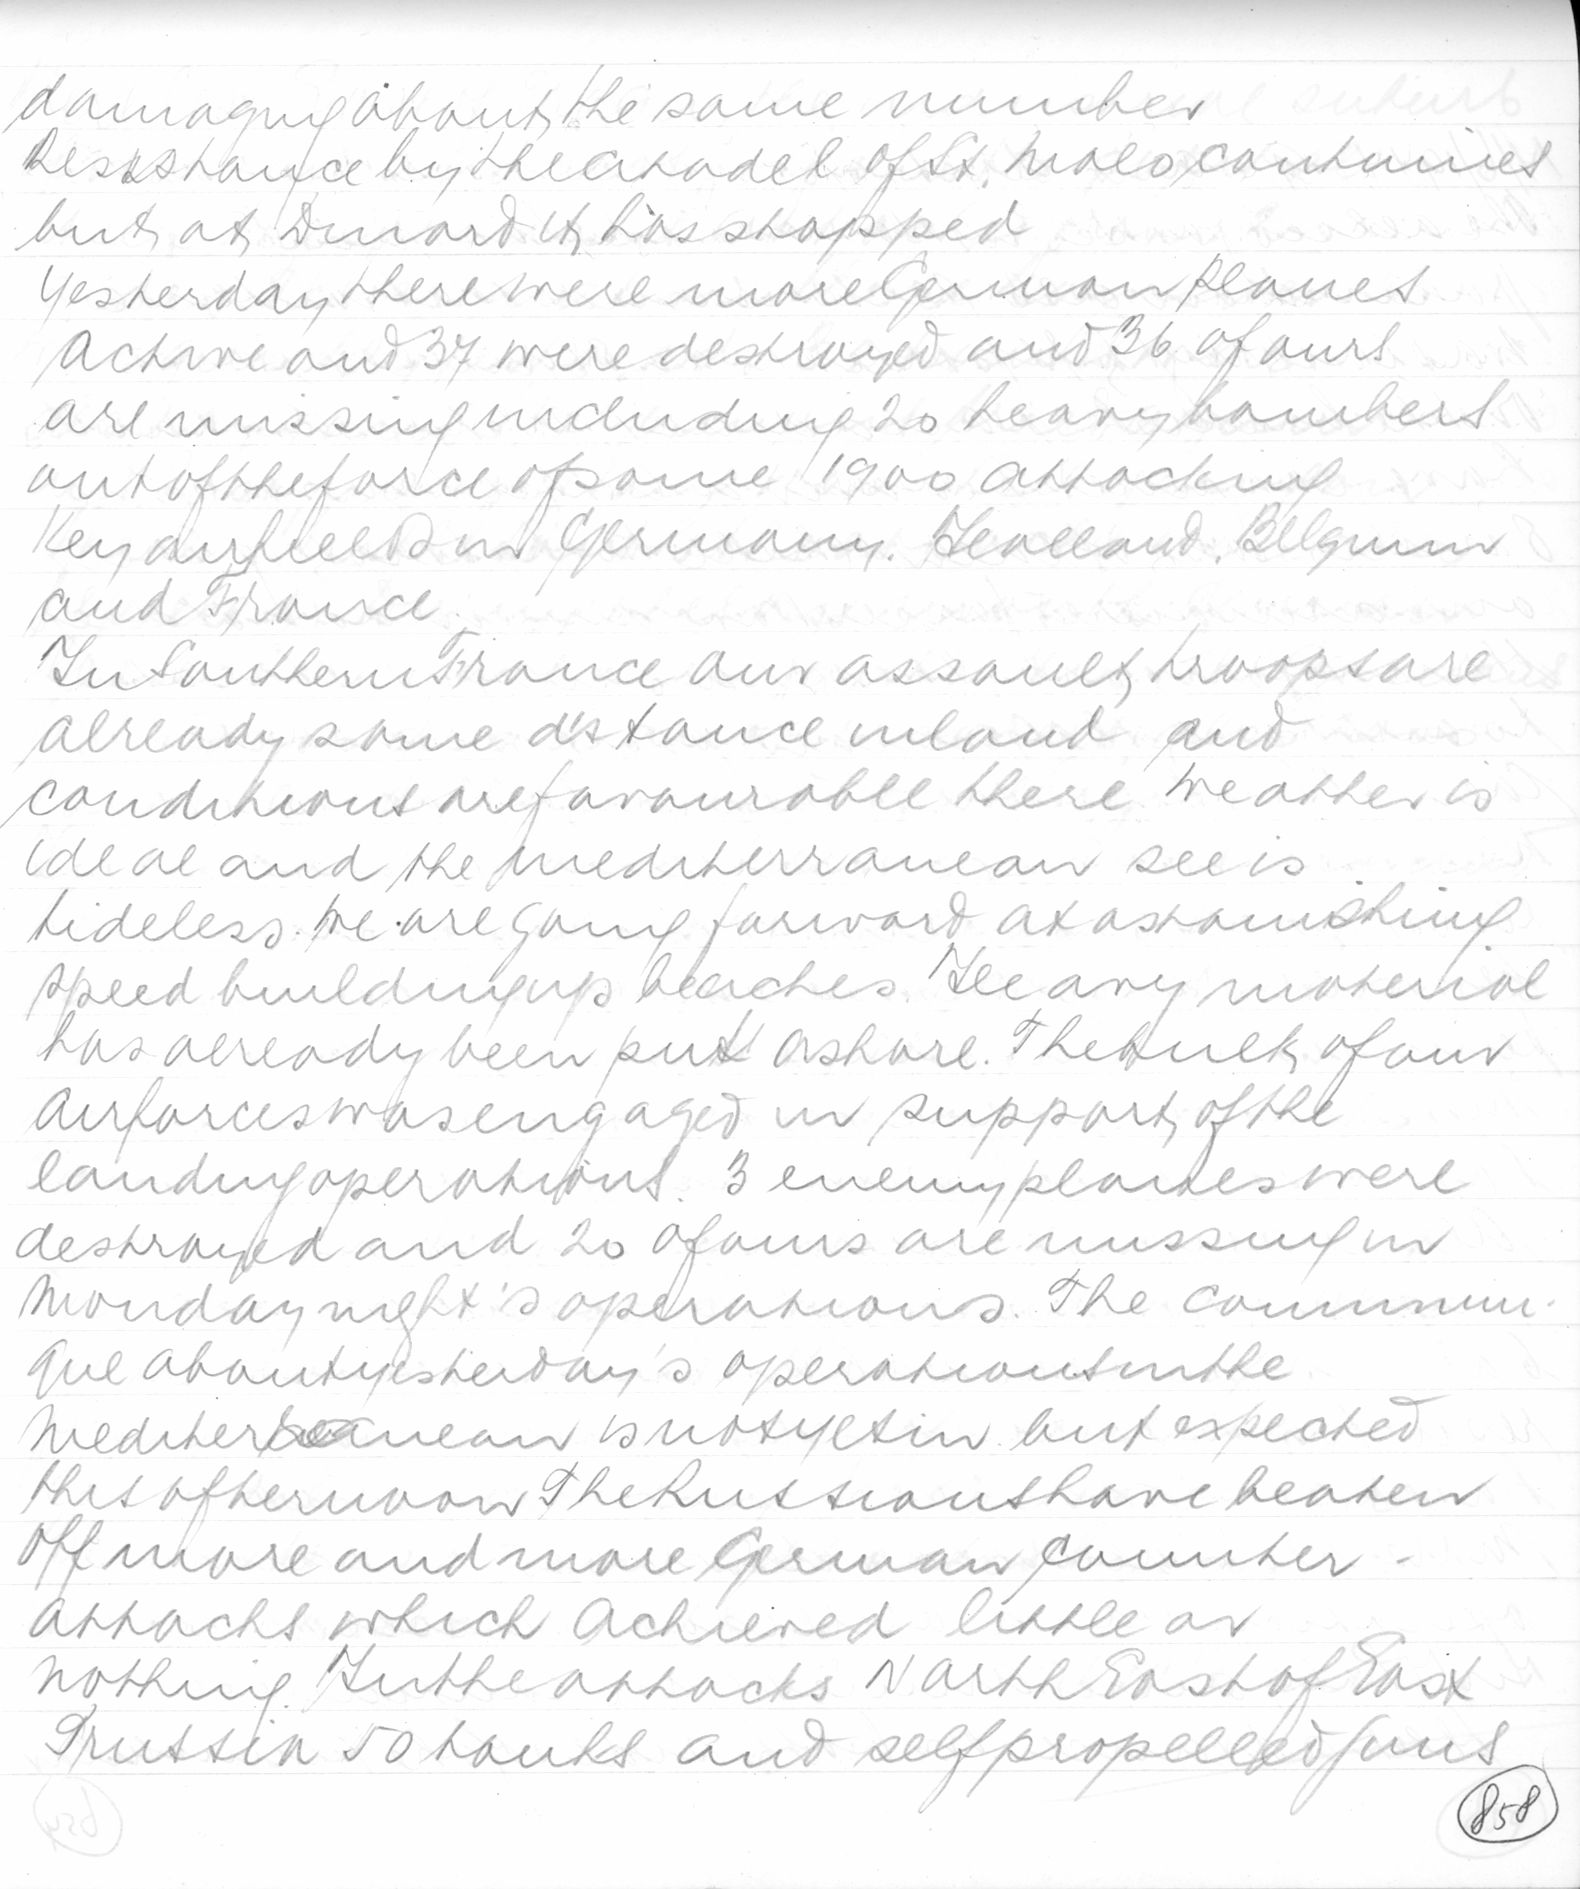 damaging about the same number
Resistance by the citadel of St. Malo continues
but at Dinard it has stopped
Yesterday there were more German planes
Active and 37 were destroyed and 36 of ours
are missing including 20 heavy bombers
out of the force of some 1900 attacking
Key airfields in Germany. Holland. Belgium
and France.
In Southern France our assault troops are
already some distance inland and
conditions are favourable there. Weather is
ideal and the Mediterranean see is
tideless. We are going forward at astonishing
speed building up beaches. Heavy material
has already been put ashore. The bulk of our
Airforces was engaged in support of the
landing operations. 3 enemy planes were
destroyed and 20 of ours are missing in
Monday night's operations. The commun-
que about yesterday's operations in the
Mediterranean is not yet in but expected
this afternoon The Russians have beaten
off more and more German counter-
attacks which achieved little or
nothing. In the attacks North East of East
Prussia 50 tanks and selfpropelled guns
858